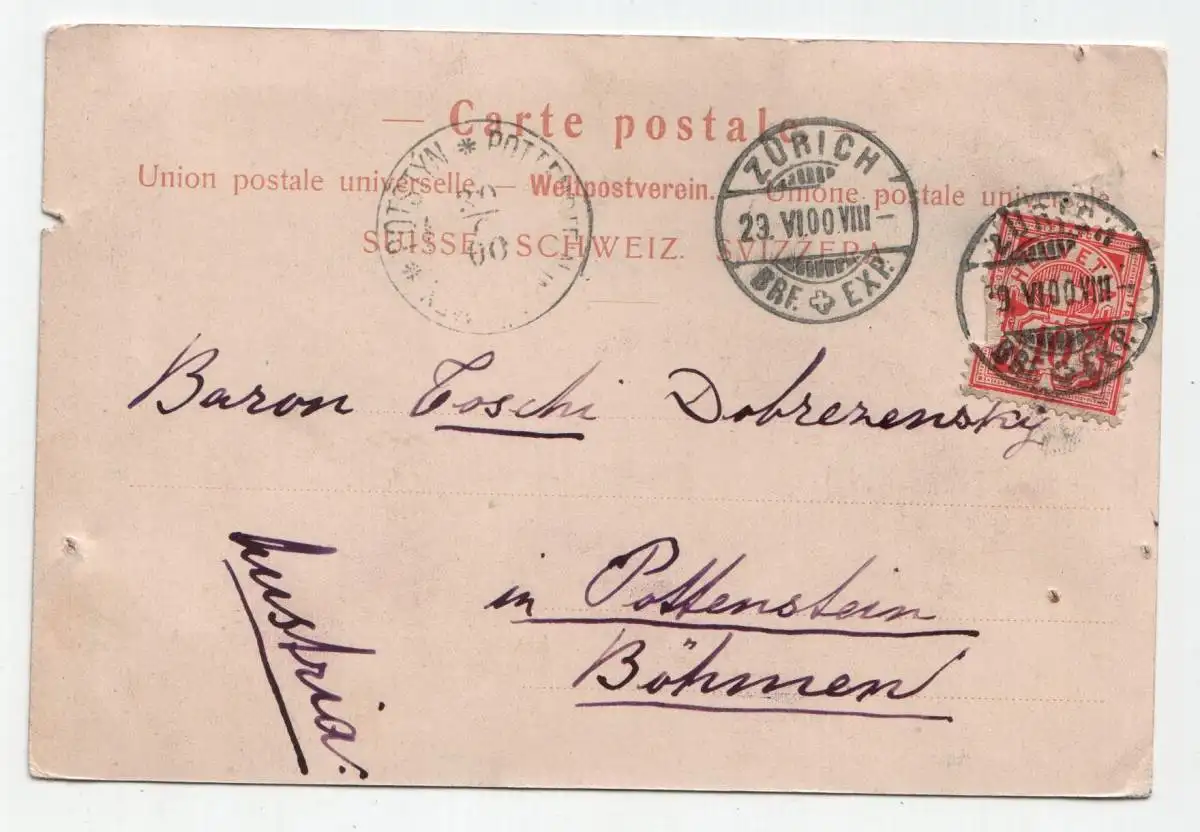 — Carte postale —
Union postale universelle. — Weltpostverein. — Unione postale universale
SUISSE. SCHWEIZ. SVIZZERA
CHOTSTYN * POTTENSTEIN
00
ZÜRICH
29. VI.00.VIII –
BRF. EXP.
ZÜRICH
9. VI.00.VIII –
BRF. EXP.
HELVETIA
10
Baron Toschi Dobrezensky
in Pottenstein
Böhmen
Austria.